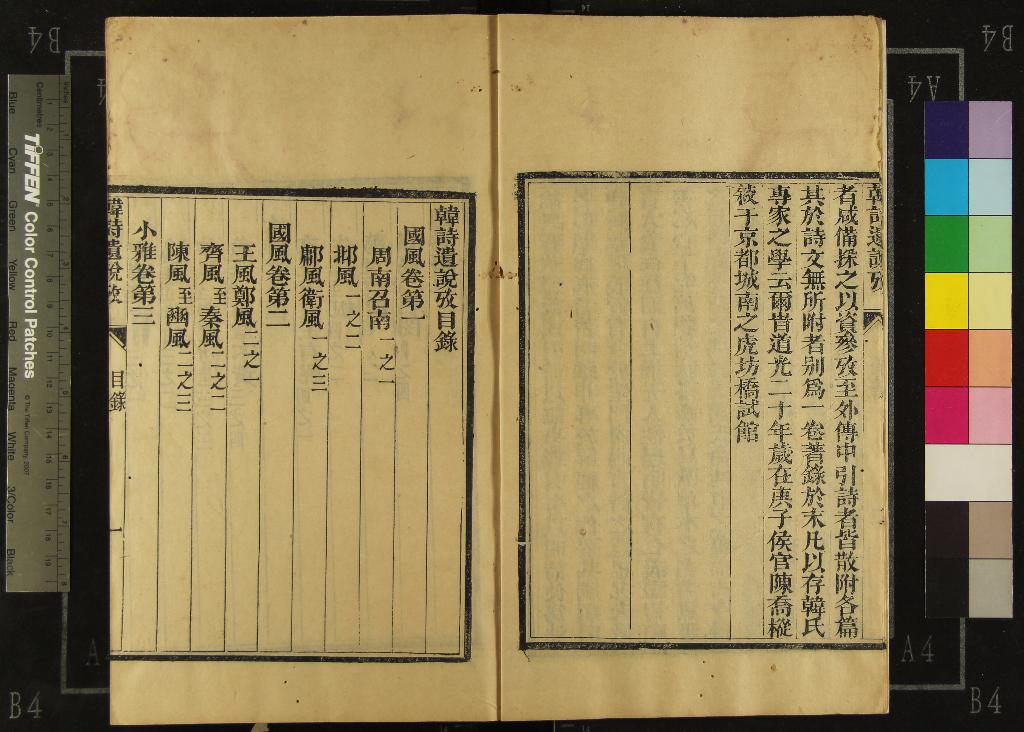 韓詩遺說攷
者咸備採之以資參攷至外傳中引詩者皆散附各篇
其於詩文無所附者别爲一卷著錄於末凡以存韓氏
專家之學云爾旹道光二十年歲在庚子侯官陳喬樅
篏于京都城南之虎坊橋試館
韓詩遺說攷目錄
國風卷第一
周南召南一之一
邶風一之二
鄘風衛風一之三
國風卷第二
王風鄭風二之一
齊風至秦風二之二
陳風至豳風二之三
小雅卷第三
韓詩遺說攷 目錄 一
TIFFEN Color Control Patches
© The Tiffen Company, 2007
Centimetres
Inches
Blue Cyan Green Yellow Red Magenta White 3/Color Black
B4
B4
A4
A4
A4
B4
B4